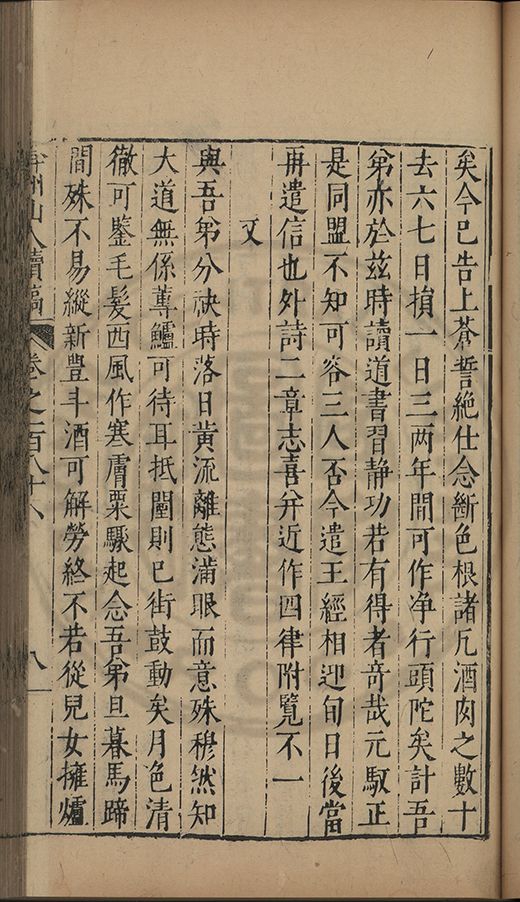 矣今已告上蒼誓絶仕念斷色根諸凡酒肉之數十
去六七日損一日三两年間可作净行頭陀矣計吾
弟亦於兹時讀道書習静功若有得者奇哉元馭正
是同盟不知可容三人否今遣王經相迎旬日後當
再遣信也外詩二章志喜并近作四律附覽不一
又
與吾弟分袂時落日黄流離態滿眼而意殊穆然知
大道無係蓴鱸可待耳抵圍則已街鼓動矣月色清
徹可鑒毛髮西風作寒膚粟驟起念吾弟旦暮馬蹄
間殊不易縱新豊斗酒可解勞終不若從兒女擁爐
弇州山人續稿 卷之一百八十八 八